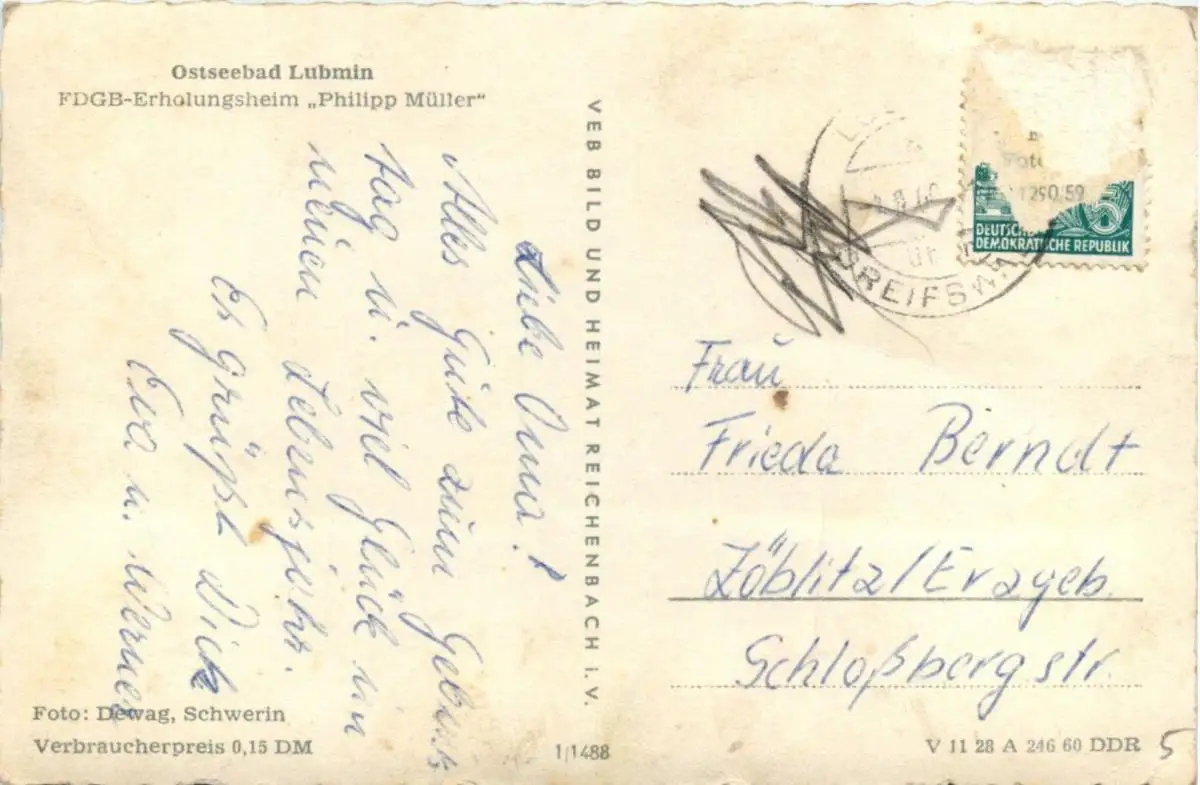 Ostseebad Lubmin
FDGB-Erholungsheim „Philipp Müller“
Liebe Oma!
Alles Gute zum Geburts
tag u. viel Glück im
neuen Lebensjahr.
Es grüßt Dich
Eva u. Werner
Foto: Dewag, Schwerin
Verbraucherpreis 0,15 DM
VEB BILD UND HEIMAT REICHENBACH I. V.
1/1488
GREIFSW
1290.59
DEUTSCHE
DEMOKRATISCHE REPUBLIK
Frau
Frieda Berndt
Zöblitz/Erzgeb.
Schloßbergstr.
V 11 28 A 246 60 DDR
5